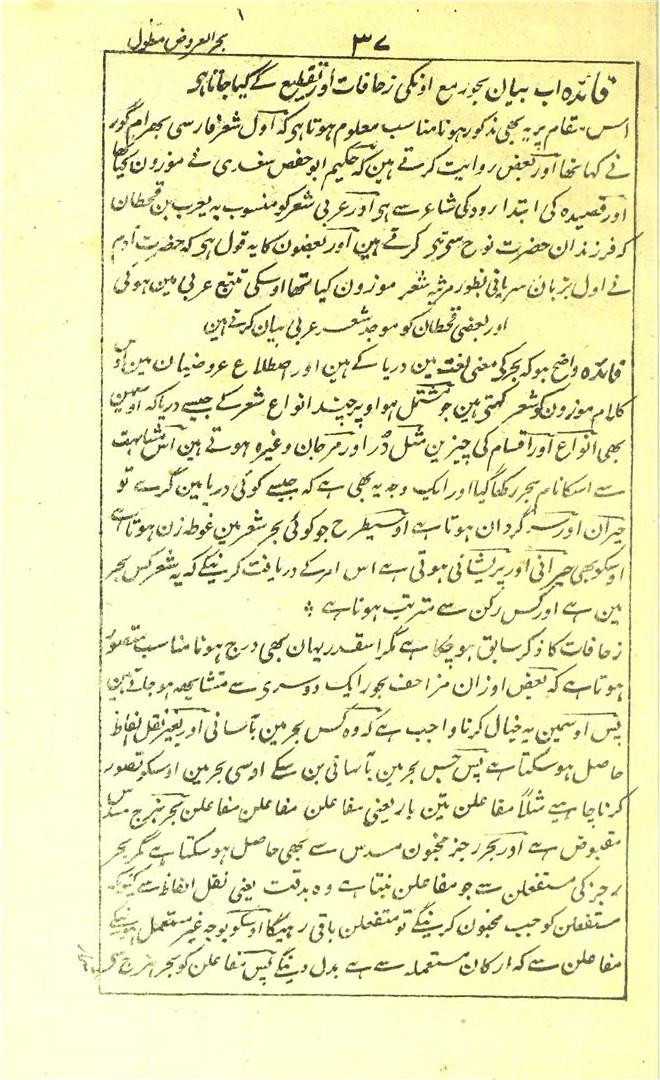 بحر العروض مطول
۳۷
فائدہ اب بیان بحور مع اونکی زحافات اور تقطیع کے کیا جاتا ہی
اس مقام پر یہ بھی مذکور ہونا مناسب معلوم ہوتا ہی کہ اول شعر فارسی بہرام گور
نے کہا تھا اور بعض روایت کرتے ہین کہ حکیم ابو حفص سغدی نے موزون کیا تھا
اور قصیدہ کی ابتدا رودکی شاعر سے ہی اور عربی شعر کو منسوب بہ یعرب بن قحطان
کہ فرزندان حضرت نوح سی تہی کرتے ہین اور بعضون کا یہ قول ہی کہ حضرت آدم
نے اول بزبان سریانی بطور مرثیہ شعر موزون کیا تھا اوسکی تتبع عربی مین ہوئی
اور بعضی قحطان کو موجد شعر عربی بیان کرتے ہین
فائدہ واضح ہو کہ بحر کی معنی لغت مین دریا کے ہین اور اصطلاح عروضیان مین اوس
کلام موزون کو شعر کہتی ہین جو مشتمل ہو اوپر چند انواع شعر کے جیسے دریا کہ اوسمین
بھی انواع اور اقسام کی چیزین مثل دُر اور مرجان وغیرہ ہوتے ہین اس مشابہت
سے اسکا نام بحر رکھا گیا اور ایک وجہ یہ بھی ہے کہ جیسے کوئی دریا مین گرے تو
حیران اور سرگردان ہوتا ہے اوسیطرح جو کوئی بحر شعر مین غوطہ زن ہوتا ہے
اوسکو بھی حیرانی اور پریشانی ہوتی ہے اس امر کے دریافت کرنیکے کہ یہ شعر کس بحر
مین ہے اور کس رکن سے مترتب ہوتا ہے ؞
زحافات کا ذکر سابق ہو چکا ہے مگر اسقدر یہان بھی درج ہونا مناسب متصور
ہوتا ہے کہ بعض اوزان مزاحف بحور ایک دوسری سے متشابھہ ہو جاتے ہین
پس اوسمین یہ خیال کرنا واجب ہے کہ وہ کس بحر مین بآسانی اور بغیر نقل الفاظ
حاصل ہو سکتا ہے پس جس بحر مین بآسانی بن سکے اوسی بحر مین اوسکو تصور
کرنا چاہیے مثلاً مفاعلن تین بار یعنی مفاعلن مفاعلن مفاعلن بحر ہزج مسدس
مقبوض ہے اور بحر رجز مخبون مسدس سے بھی حاصل ہو سکتا ہے مگر بحر
رجز کی مستفعلن سے جو مفاعلن بنتا ہے وہ بدقت یعنی نقل الفاظ سے کیونکہ
مستفعلن کو جب مخبون کرینگے تو متفعلن باقی رہیگا اوسکو بوجہ غیر مستعمل ہونیکے
مفاعلن سے کہ ارکان مستعملہ سے ہے بدل دینگے پس مفاعلن کو بحر ہزج سی